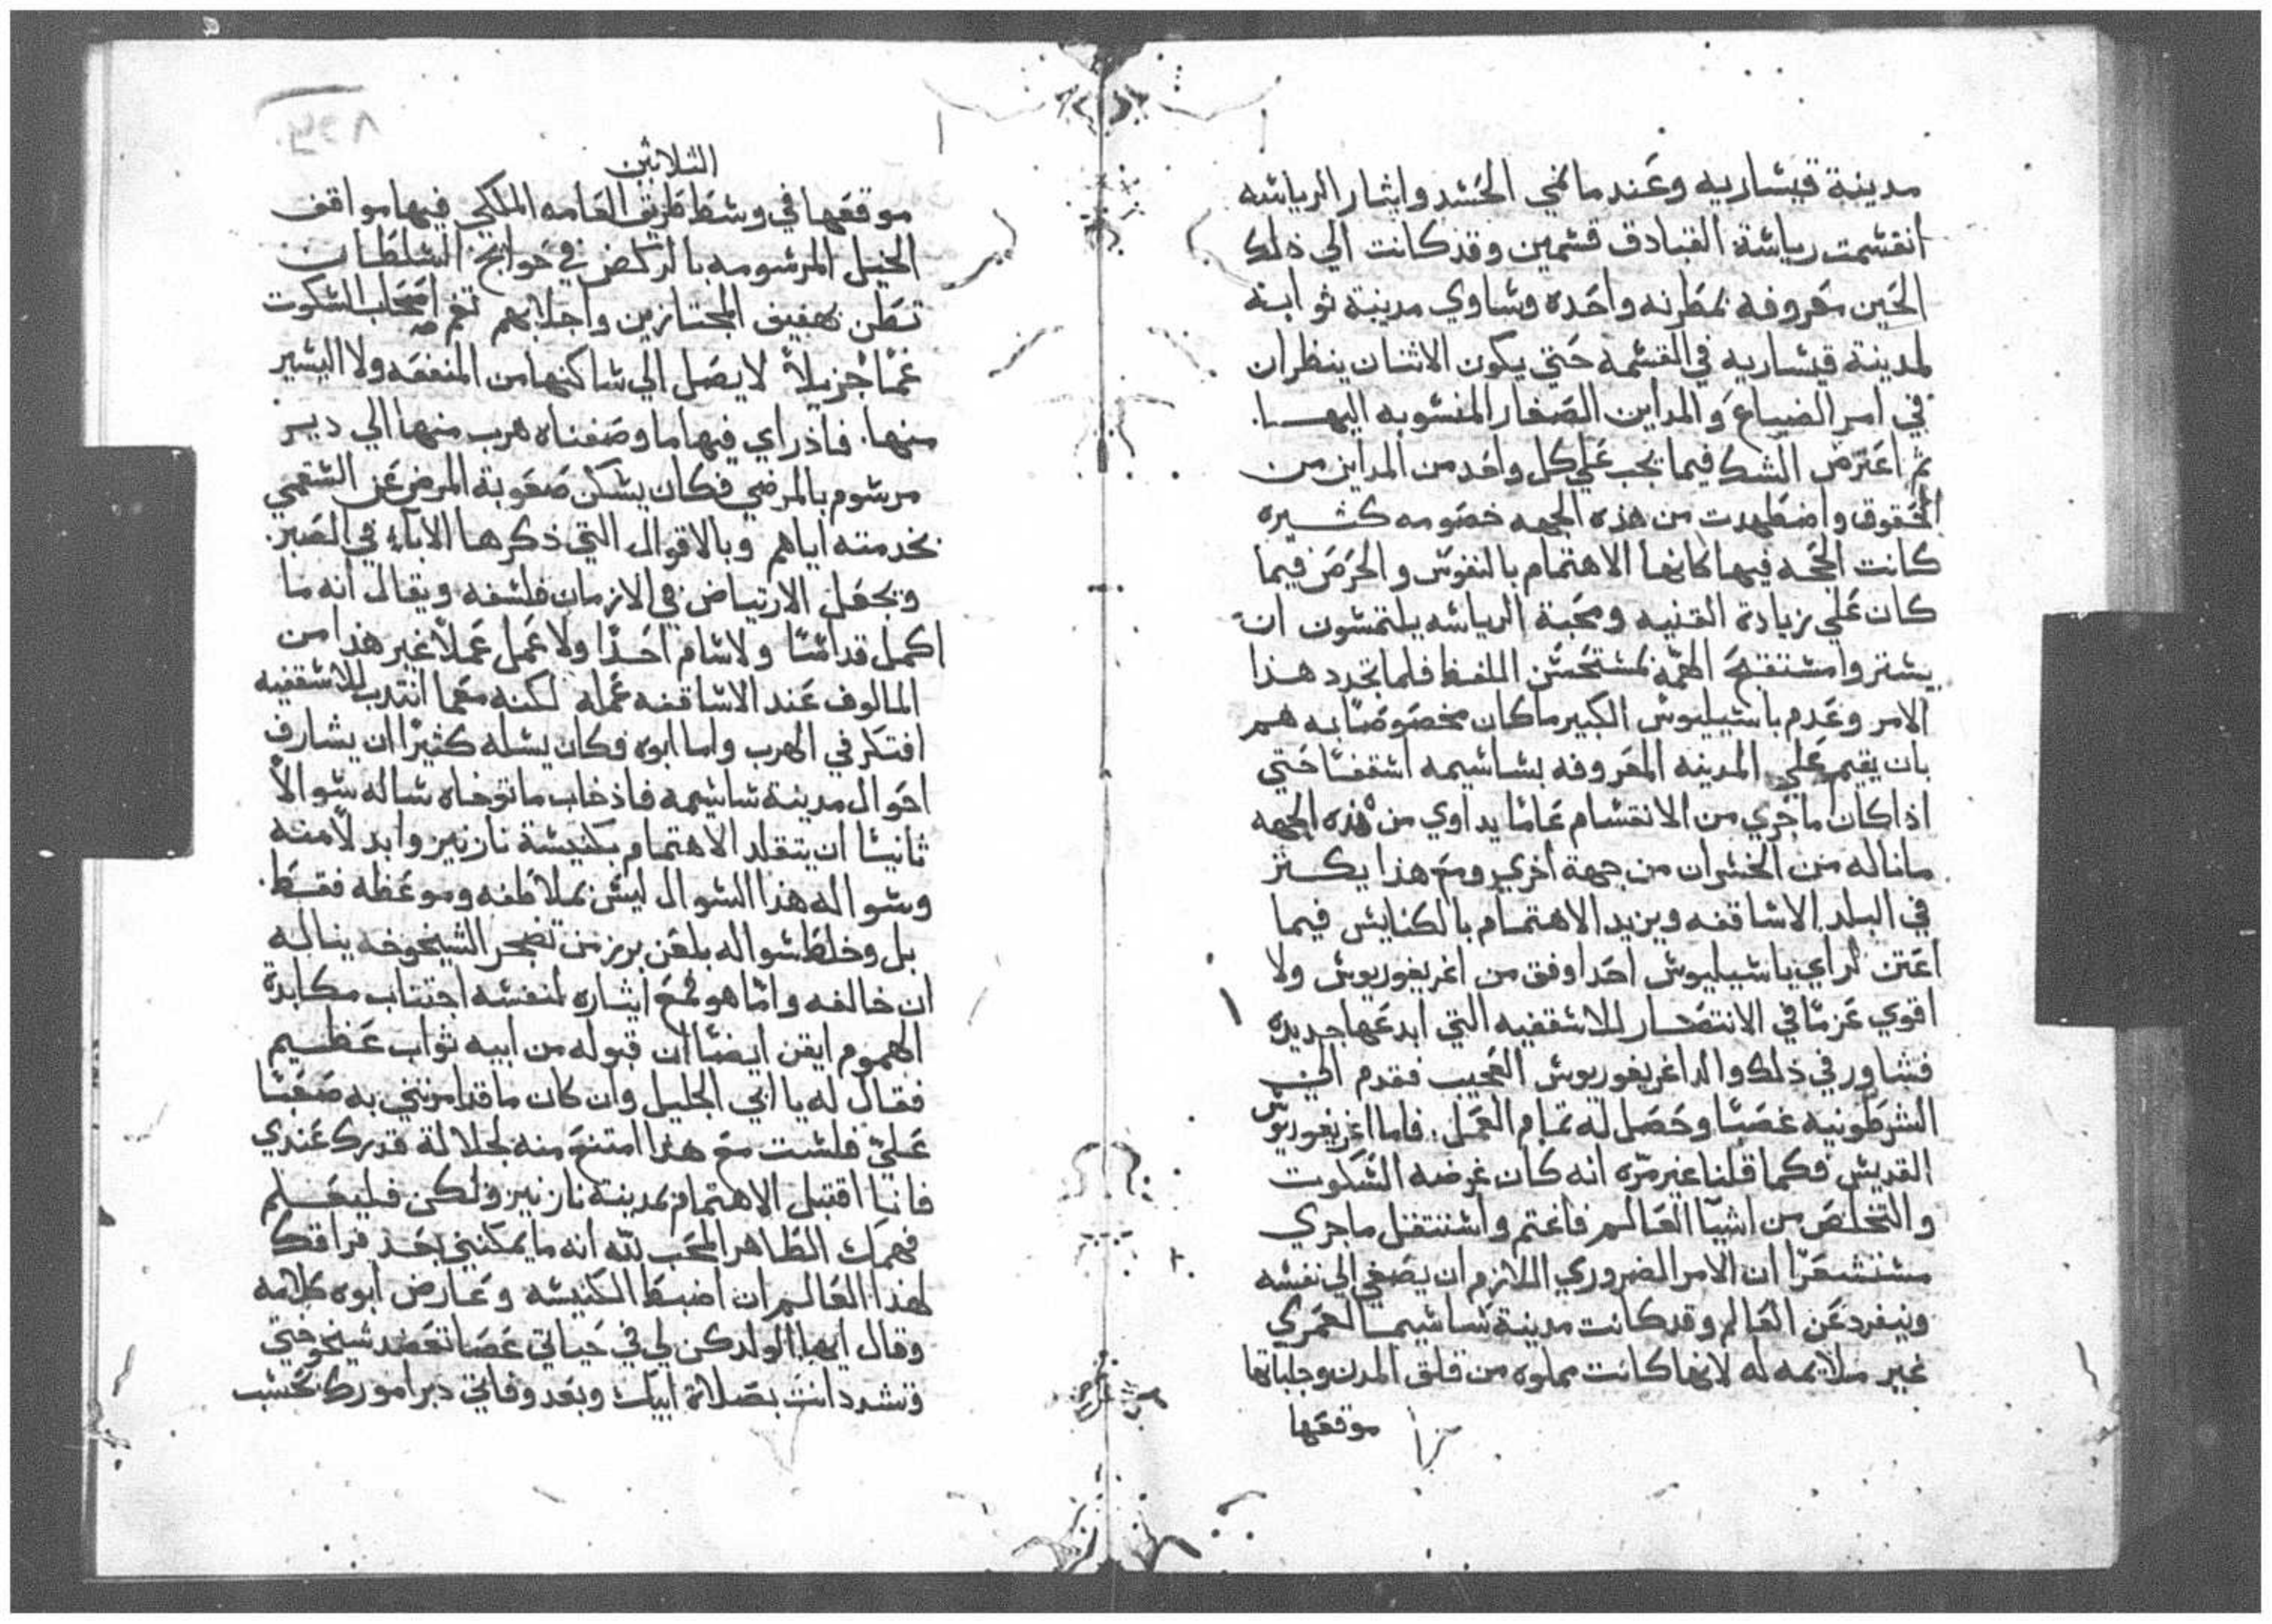 مدينة قيساريه وعند ما نمي الحسد وايثار الرياسه
انقسمت رياسة القبادق قسمين وقد كانت الي ذلك
الحين معروفه بمطرنه واحده وساوي مدينة ثوابنه
لمدينة قيساريه في القسمه حتي يكون الاثنان ينظران
في امر الضياع والمداين الصغار المنسوبه اليهـــا.
ثم اعترض الشك فيما يجب علي كل واحد من المداين من
الحقوق واضطهدت من هذه الجهه خصومه كثيره
كانت الحجه فيها كانها الاهتمام بالنفوس والحرص فيما
كان علي زيادة القنيه ومحبة الرياسه يلتمسون ان
يستروا مستقبح الهمه بمستحسن اللفظ فلما تجرد هذا
الامر وعدم باسيليوس الكبير ما كان مخصوصًا به هم
بان يقيم علي المدينه المعروفه بساسيمه اسقفًا حتي
اذا كان ما جري من الانقسام عامًا يداوي من هذه الجهه
ما ناله من الخسران من جهة اخري ومع هذا يكثر
في البلد الاساقفه ويزيد الاهتمام بالكنايس فيما
اعتن لراي باسيليوس احدا وفق من اغريغوريوس ولا
اقوي عزمًا في الانتصار للاسقفيه التي ابدعها جديده
فشاور في ذلك والد اغريغوريوس العجيب فقدم الي
الشرطونيه غصبًا وحصل له تمام العمل. فاما اغريغوريوس
القديس فكما قلنا غير مرّه انه كان غرضه السكوت
والتخلص من اشيا العالم فاغتم واستثقل ما جري
مستشعرًا ان الامر الضروري اللازم ان يصغي الي نفسه
وينفرد عن العالم وقد كانت مدينة ساسيما لعمري
غير ملايمه له لانها كانت مملوه من قلق المدن وجلباتها
موقعها
الثلاثين
موقعها في وسط طريق العامه الملكي فيها مواقف
الخيل المرسومه بالركض في حوايج السلطان
تطن بهفيف المجتازين واجلابهم تغم اصحاب السكوت
غمًا جزيلاً لا يصل الي ساكنها من المنفعه ولا اليسير
منها. فاذ راي فيها ما وصفناه هرب منها الي دير
مرسوم بالمرضي فكان يسكن صعوبة المرض عن السقمي
بخدمته اياهم وبالاقوال التي ذكرها الاباء في الصبر.
ويجعل الارتياض في الازمان فلسفه ويقال انه ما
اكمل قداسًا ولا سام احدًا ولا عمل عملاً غير هذا من
المالوف عند الاساقفه عمله لكنه معما انتدب للاسقفيه
افتكر في الهرب واما ابوه فكان يسله كثيرًا ان يشارف
احوال مدينة ساسيمه فاذ خاب ما توخاه ساله سوالاً
ثانيًا ان يتقلد الاهتمام بكنيسة نازينز وابدلا منه
وسواله هذا السوال ليس بملاطفه وموعظه فقط.
بل وخلط سواله بلعن برز من تضجر الشيخوخه يناله
ان خالفه واما هو فمع ايثاره لنفسه اجتناب مكابدة
الهموم ايقن ايضًا ان قبوله من ابيه ثواب عظيم
فقال له يا ابي الجليل وان كان ما قد امرتني به صعبًا
عليّ فلست مع هذا امتنع منه لجلالة قدرك عندي
فانا اقتبل الاهتمام بمدينة نازينز ولكن فليعلم
فهمك الطاهر المحب لله انه ما يمكنني بعد فراقك
لهذا العالم ان اضبط الكنيسه وعارض ابوه كلامه
وقال ايها الولد كن لي في حياتي عصا تعضد شيخوختي
وتشدد انت بصلاة ابيك وبعد وفاتي دبر امورك بحسب